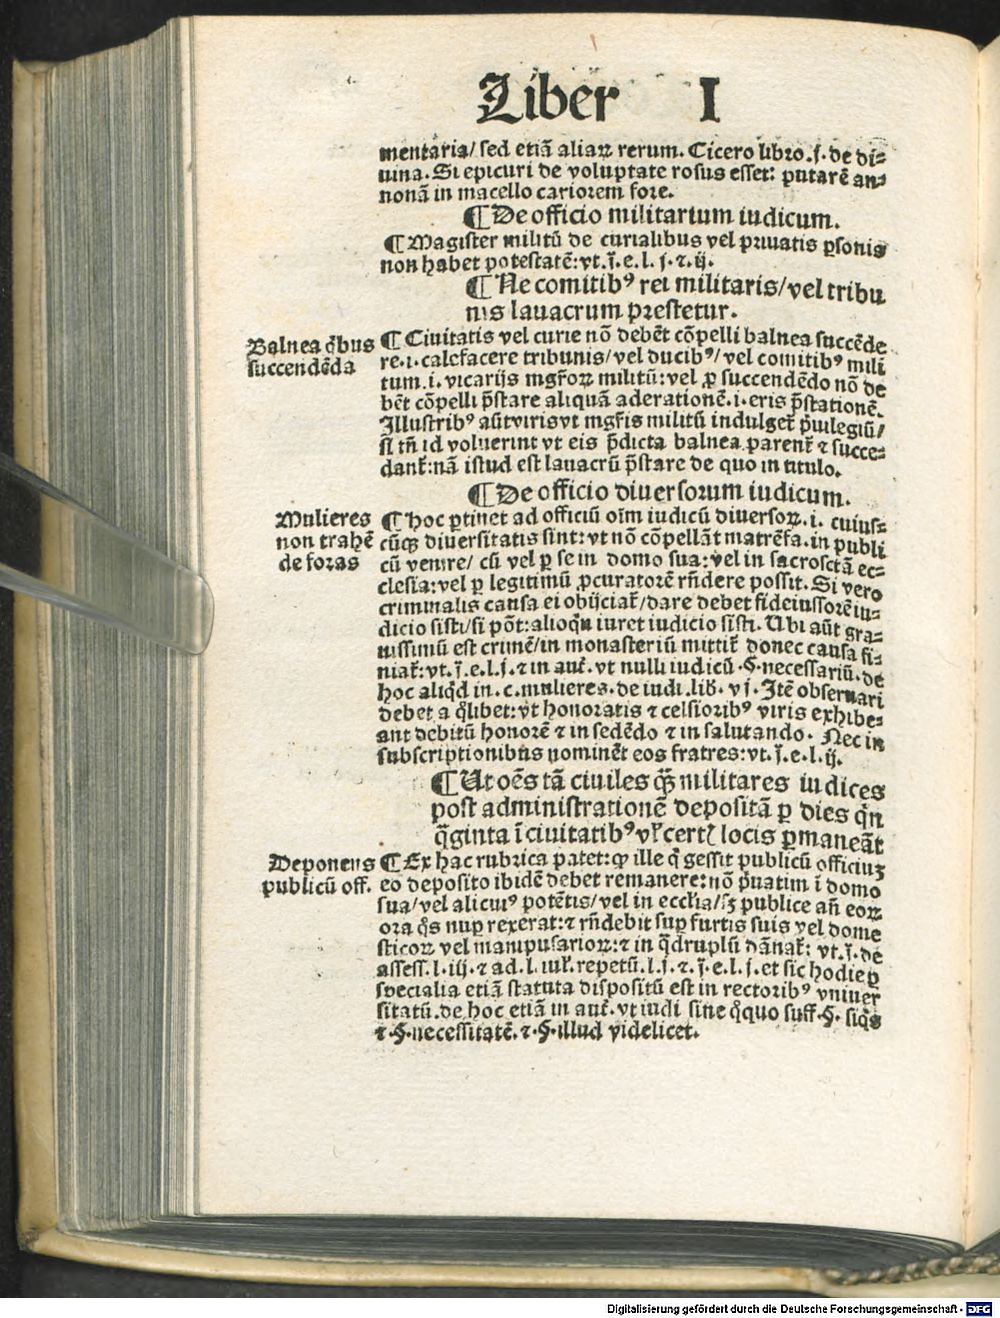 Liber I
mentaria/ sed etiā aliaꝝ rerum. Cicero libro.j. de di⸗
uina. Si epicuri de voluptate rosus esset: putarē an⸗
nonā in macello cariorem fore.
¶ De officio militarium iudicum.
¶ Magister militū de curialibus vel priuatis ꝑsonis
non habet potestatē: vt.j̄.e.l. j.⁊.ij.
¶ Ne comitibꝰ rei militaris/ vel tribu
nis lauacrum prestetur.
Balnea q̄bus
succendēda
¶ Ciuitatis vel curie nō debēt cōpelli balnea succēde
re.i.calefacere tribunis/ vel ducibꝰ/ vel comitibꝰ mili
tum.i. vicarijs mgr̄oꝝ militū: vel ꝓ succendēdo nō de
bēt cōpelli p̄stare aliquā aderationē.i.eris p̄stationē.
Illustribꝰ aūt viris vt mgr̄is militū indulget̄ p̄uilegiū/
si tn̄ id voluerint vt eis p̄dicta balnea parent̄ ⁊ succe⸗
dant̄: nā istud est lauacrū p̄stare de quo in titulo.
¶ De officio diuersorum iudicum.
Mulieres
non trahē
de foras
¶ hoc ꝑtinet ad officiū oīm iudicū diuersoꝝ.i. cuius⸗
cūqꝫ diuersitatis sint: vt nō cōpellāt matrēfa. in publi
cū venire/ cū vel ꝑ se in domo sua: vel in sacrosctā ec⸗
clesia: vel ꝑ legitimū ꝓcuratorē rn̄dere possit. Si vero
criminalis causa ei obijciat̄/ dare debet fideiussorē iu⸗
dicio sisti/ si pōt: alioqn̄ iuret iudicio sisti. Ubi aūt gra⸗
uissimū est crimē/ in monasteriū mittit̄ donec causa fi⸗
niat̄: vt.j̄.e.l.j.⁊ in aut̄. vt nulli iudicū .§. necessariū. de
hoc aliqd̄ in .c. mulieres. de iudi. lib̄. vj. Itē obseruari
debet a q̄libet: vt honoratis ⁊ celsioribꝰ viris exhibe⸗
ant debitū honorē ⁊ in sedēdo ⁊ in salutando. Nec in
subscriptionibus nominēt eos fratres: vt.j̄.e.l.ij.
¶ Ut oēs tā ciuiles qꝫ̄ militares iudices
post administrationē depositā ꝑ dies qn̄
q̄ginta ī ciuitatibꝰ vl̄ certꝭ locis ꝑmaneāt
Deponens
publicū off.
¶ Ex hac rubrica patet: ꝙ ille q̄ gessit publicū officiuꝫ
eo deposito ibidē debet remanere: nō p̄uatim ī domo
sua/ vel alicuiꝰ potētis/ vel in eccl̄ia/ sꝫ publice añ eoꝝ
ora q̄s nuꝑ rexerat: ⁊ rn̄debit suꝑ furtis suis vel dome
sticoꝝ vel manipularioꝝ: ⁊ in q̄druplū dānat̄: vt.j̄. de
assess. l.iij.⁊ ad.l.iul̄. repetū.l.j.⁊.j̄.e.l.j.et sic hodie ꝑ
specialia etiā statuta dispositū est in rectoribꝰ vniuer
sitatū. de hoc etiā in aut̄. vt iudi sine q̄quo suff.§. siq̄s
⁊.§. necessitatē. ⁊.§. illud videlicet.
Digitalisierung gefördert durch die Deutsche Forschungsgemeinschaft - DFG